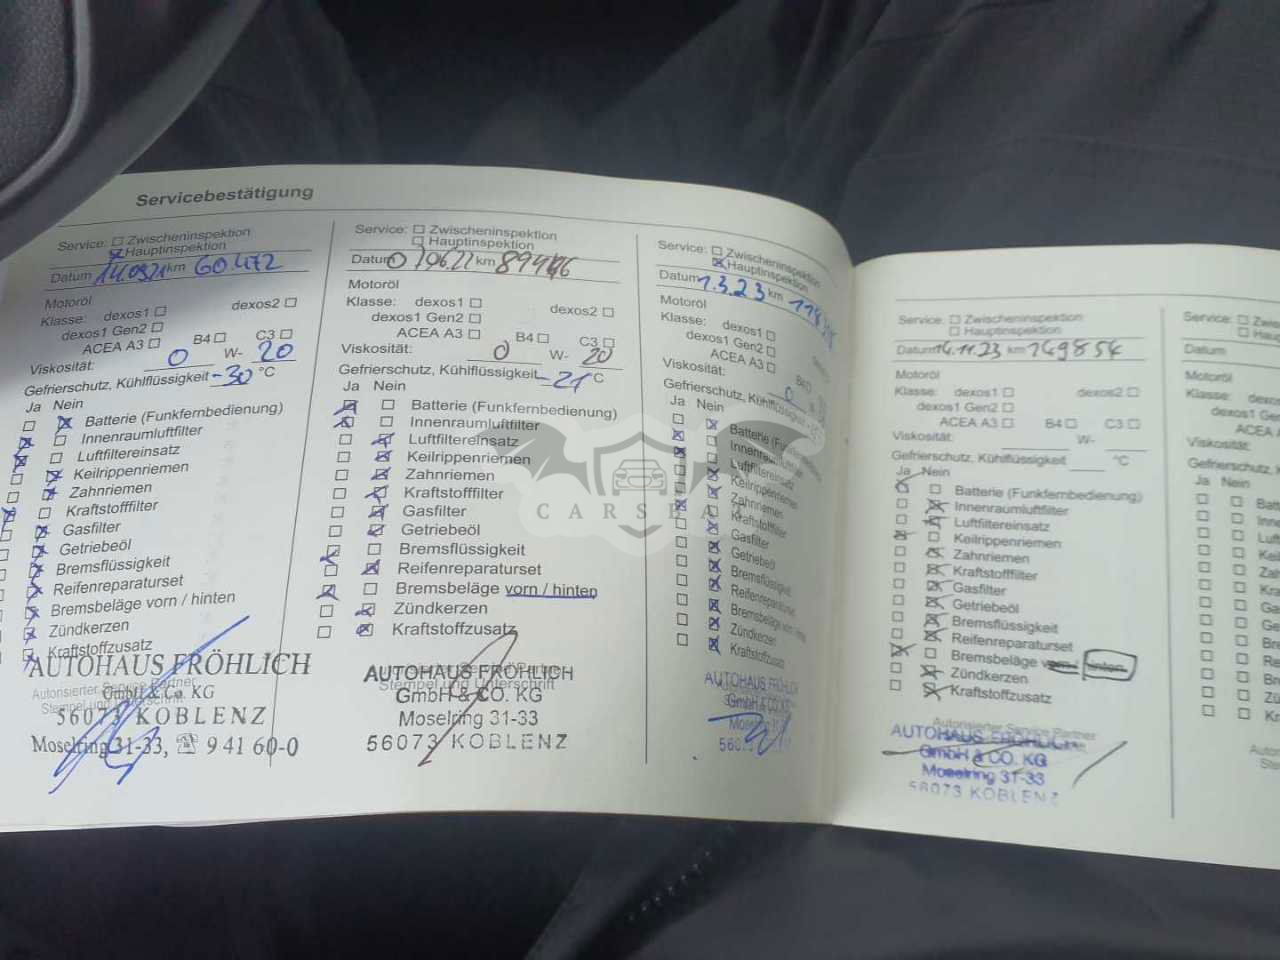 Servicebestätigung
Service: Zwischeninspektion
Hauptinspektion
Datum 14.09.21 km 60.472
Motoröl
Klasse: dexos1 dexos2
dexos1 Gen2
ACEA A3 B4 C3
Viskosität: 0 W- 20
Gefrierschutz, Kühlflüssigkeit -30 °C
Ja Nein
Batterie (Funkfernbedienung)
Innenraumluftfilter
Luftfiltereinsatz
Keilrippenriemen
Zahnriemen
Kraftstofffilter
Gasfilter
Getriebeöl
Bremsflüssigkeit
Reifenreparaturset
Bremsbeläge vorn / hinten
Zündkerzen
Kraftstoffzusatz
AUTOHAUS FRÖHLICH
Autorisierter Service Partner
GmbH & Co. KG
Stempel und Unterschrift
56073 KOBLENZ
Moselring 31-33, ☎ 9 41 60-0
Service: Zwischeninspektion
Hauptinspektion
Datum km
Motoröl
Klasse: dexos1 dexos2
dexos1 Gen2
ACEA A3 B4 C3
Viskosität: 0 W- 20
Gefrierschutz, Kühlflüssigkeit -21 °C
Ja Nein
Batterie (Funkfernbedienung)
Innenraumluftfilter
Luftfiltereinsatz
Keilrippenriemen
Zahnriemen
Kraftstofffilter
Gasfilter
Getriebeöl
Bremsflüssigkeit
Reifenreparaturset
Bremsbeläge vorn / hinten
Zündkerzen
Kraftstoffzusatz
Autorisierter Service Partner
AUTOHAUS FRÖHLICH
Stempel und Unterschrift
GmbH & CO. KG
Moselring 31-33
56073 KOBLENZ
Service: Zwischeninspektion
Hauptinspektion
Datum 1.3.23 km
Motoröl
Klasse: dexos1
dexos1 Gen2
ACEA A3 B4
Viskosität: 0
Gefrierschutz, Kühlflüssigkeit
Ja Nein
Batterie
Innenraumluftfilter
Luftfiltereinsatz
Keilrippenriemen
Zahnriemen
Kraftstofffilter
Gasfilter
Getriebeöl
Bremsflüssigkeit
Reifenreparaturset
Bremsbeläge vorn / hinten
Zündkerzen
Kraftstoffzusatz
AUTOHAUS FRÖHLICH
GmbH & CO. KG
5607
CARSBAT
Service: Zwischeninspektion
Hauptinspektion
Datum 14.11.23 km 149854
Motoröl
Klasse: dexos1 dexos2
dexos1 Gen2
ACEA A3 B4 C3
Viskosität: W-
Gefrierschutz, Kühlflüssigkeit °C
Ja Nein
Batterie (Funkfernbedienung)
Innenraumluftfilter
Luftfiltereinsatz
Keilrippenriemen
Zahnriemen
Kraftstofffilter
Gasfilter
Getriebeöl
Bremsflüssigkeit
Reifenreparaturset
Bremsbeläge vorn / hinten
Zündkerzen
Kraftstoffzusatz
Autorisierter Service Partner
AUTOHAUS FRÖHLICH
GmbH & CO. KG
Moselring 31-33
56073 KOBLENZ
Service:
Datum
Motoröl
Klasse:
dexos1
ACEA
Viskosität:
Gefrierschutz,
Ja Nein